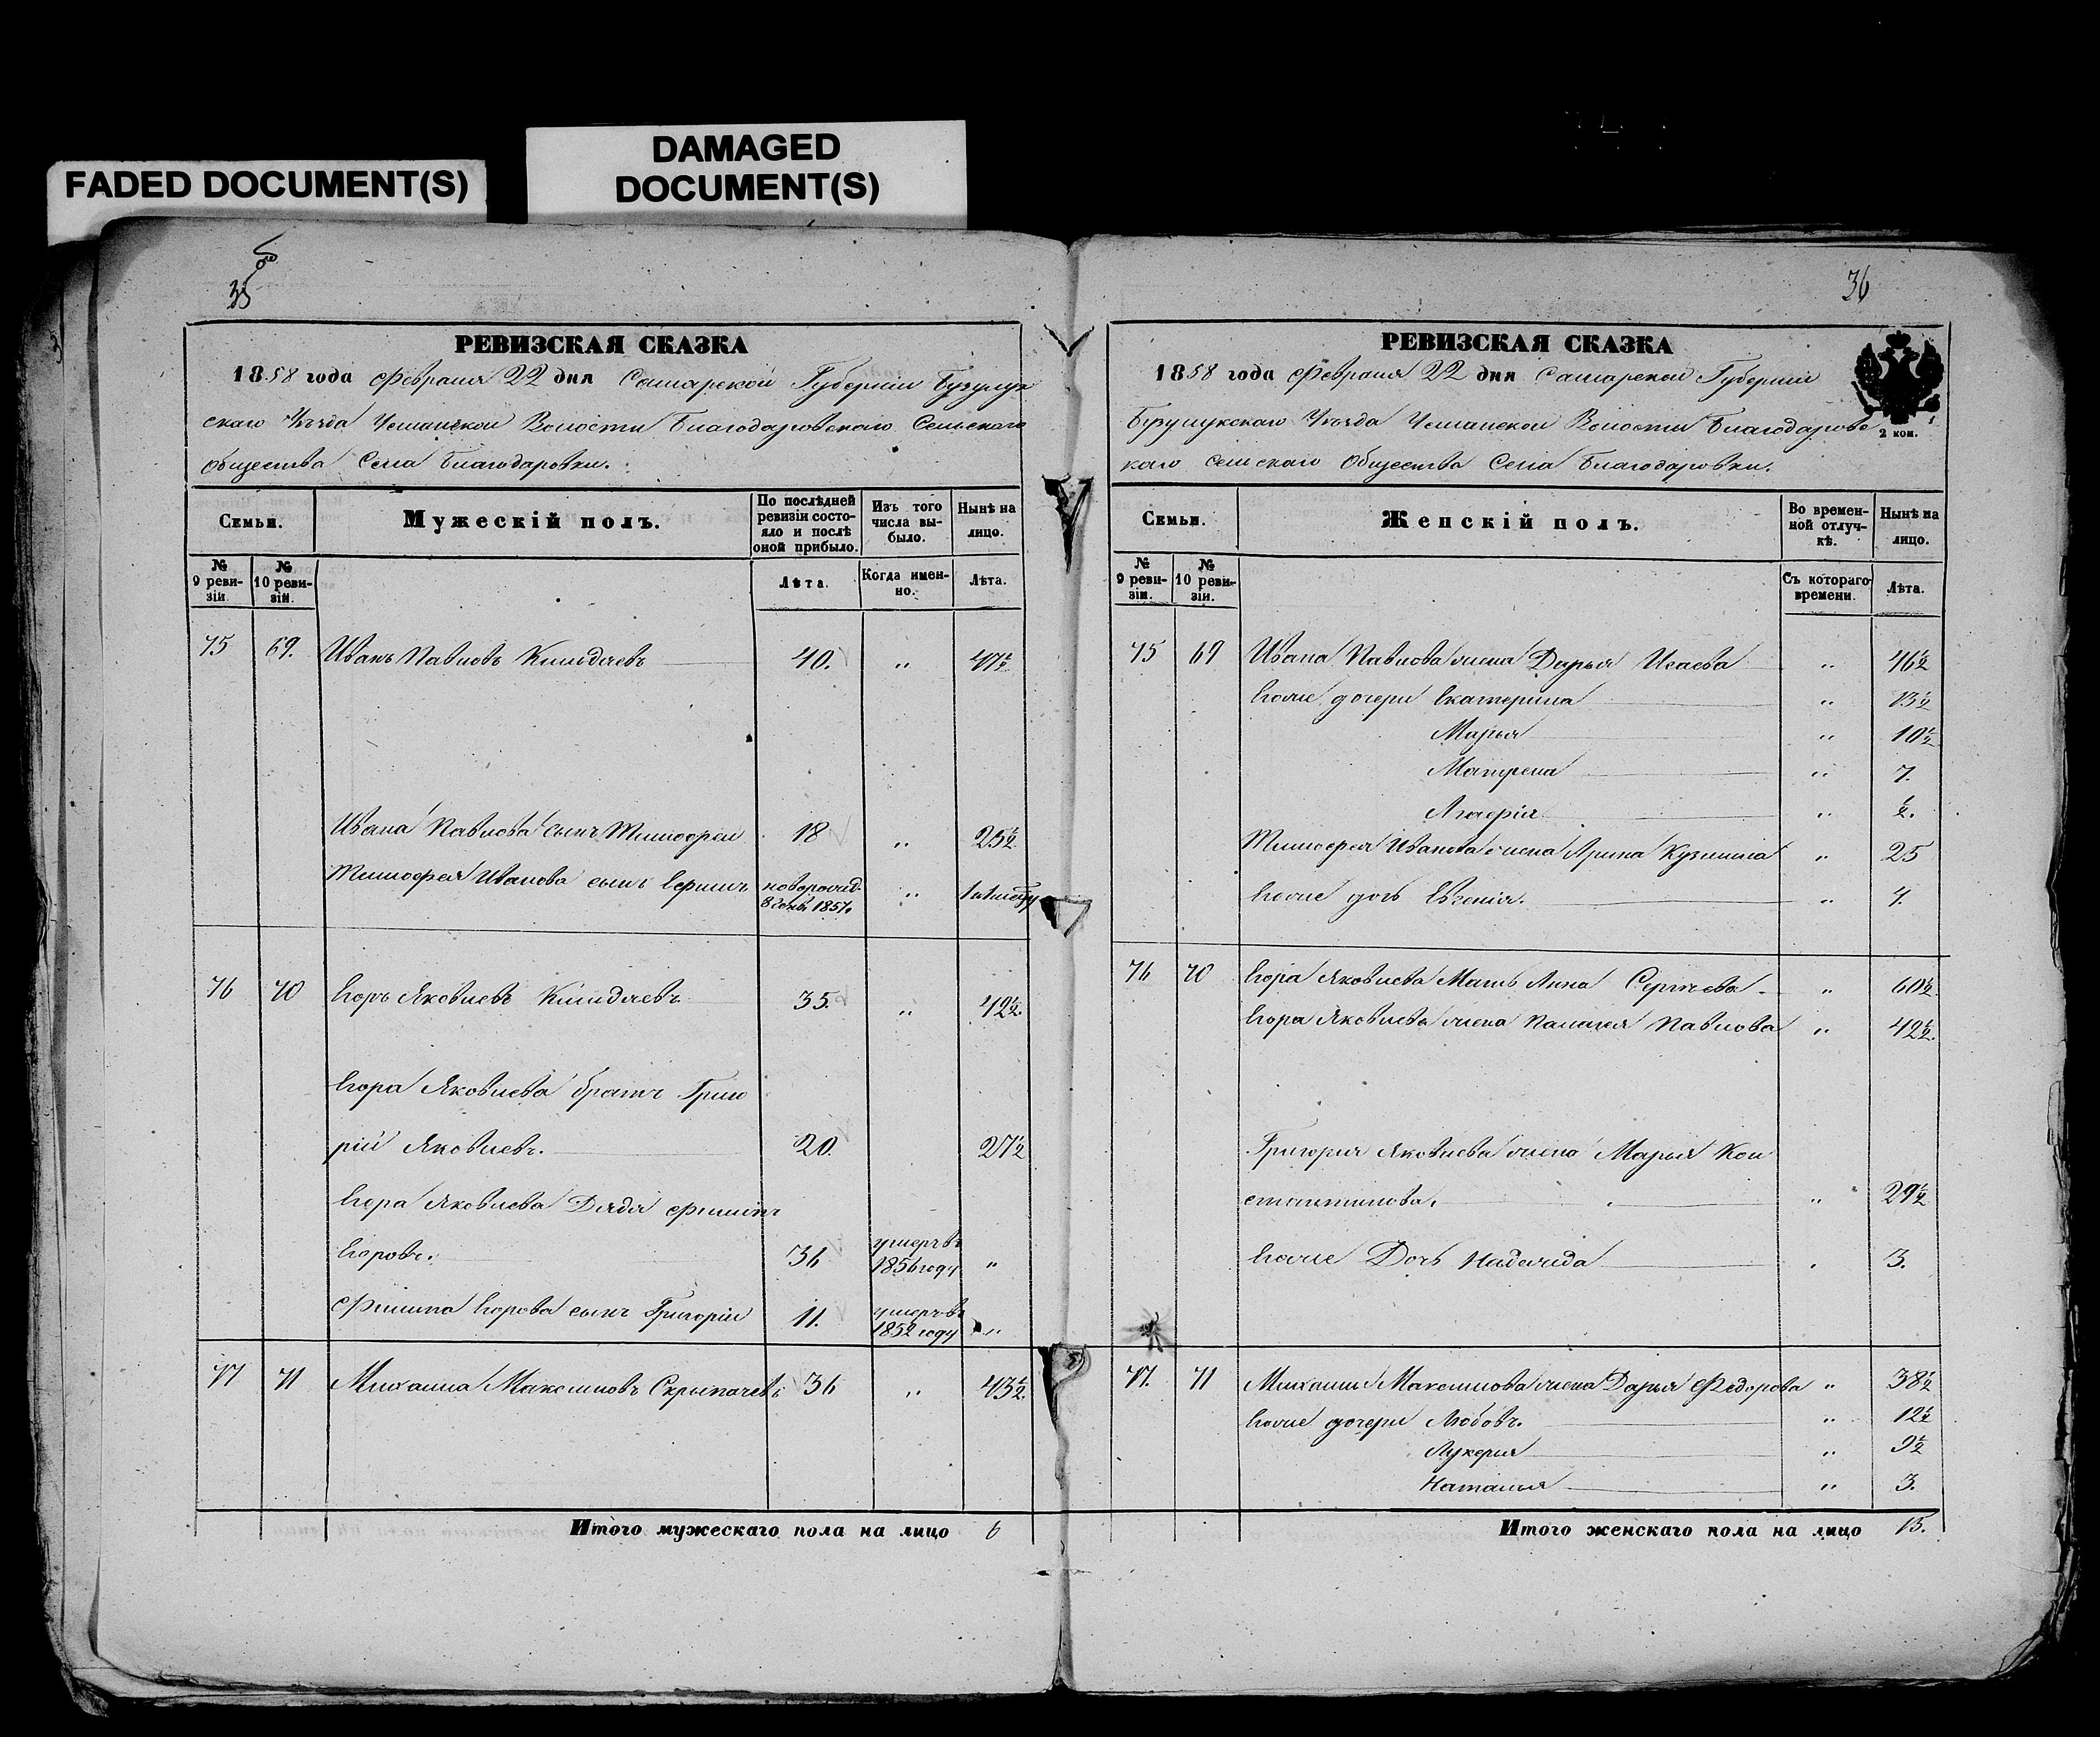 FADED DOCUMENT(S)
DAMAGED
DOCUMENT(S)
35
РЕВИЗСКАЯ СКАЗКА
1858 года Февраля 22 дня Самарской Губерніи Бузулук
скаго Уѣзда Волости Благодаровскаго Сельскаго
общества Села Благодаровки.
Семьи.
Мужескій полъ.
По послѣдней
ревизіи состо-
яло и послѣ
оной прибыло.
Изъ того
числа вы-
было.
Нынѣ на
лицо.
№
9 реви-
зіи
№
10 реви-
зіи.
Лѣта.
Когда имен-
но.
Лѣта.
75 69. Иванъ Павловъ 40. „ 47½
Ивана Павлова сынъ Тимофей 18 „ 25½
Тимофея Иванова сынъ новорожд. „
1857.
76 70 Егоръ Яковлевъ 35. „ 42½.
Егора Яковлева братъ Григо
рій Яковлевъ. 20. 27½
Егора Яковлева Дядя Филипъ
Егоровъ. 36 умеръ въ 1856 году „
Филипа Егорова сынъ Григорій 11. умеръ въ 1852 году „
77 71 Михаила Максимовъ 36 „ 43½.
Итого мужескаго пола на лицо 6
36
РЕВИЗСКАЯ СКАЗКА
1858 года Февраля 22 дня Самарской Губерніи
Бузулукскаго Уѣзда Волости Благодаровс
каго сельскаго Общества Села Благодаровки.
2 коп.
Семьи.
Женскій полъ.
Во времен-
ной отлуч-
кѣ.
Нынѣ на
лицо.
№
9 реви-
зіи.
№
10 реви-
зіи.
Съ котораго
времени.
Лѣта.
75 69 Ивана Павлова жена Дарья Исаева „ 46½
Егоже дочери Екатерина „ 13½
Марья „ 10½
Матрена „ 7.
„ ½.
Тимофея Иванова жена Арина Кузмина „ 25
Егоже дочь Евгенія. „
76 70 Егора Яковлева Мать Анна Сергѣева „ 60½.
Егора Яковлева жена Палагея Павлова „ 42½.
Григорія Яковлева жена Марья Кон
стантинова. „ 29½
Егоже Дочь Надежда 3.
77. 71 Михаила Максимова жена Дарья Федорова „ 38½
Егоже дочери Любовь. „ 12½
Лукерья „ 9½
Наталья „ 3.
Итого женскаго пола на лицо 15.